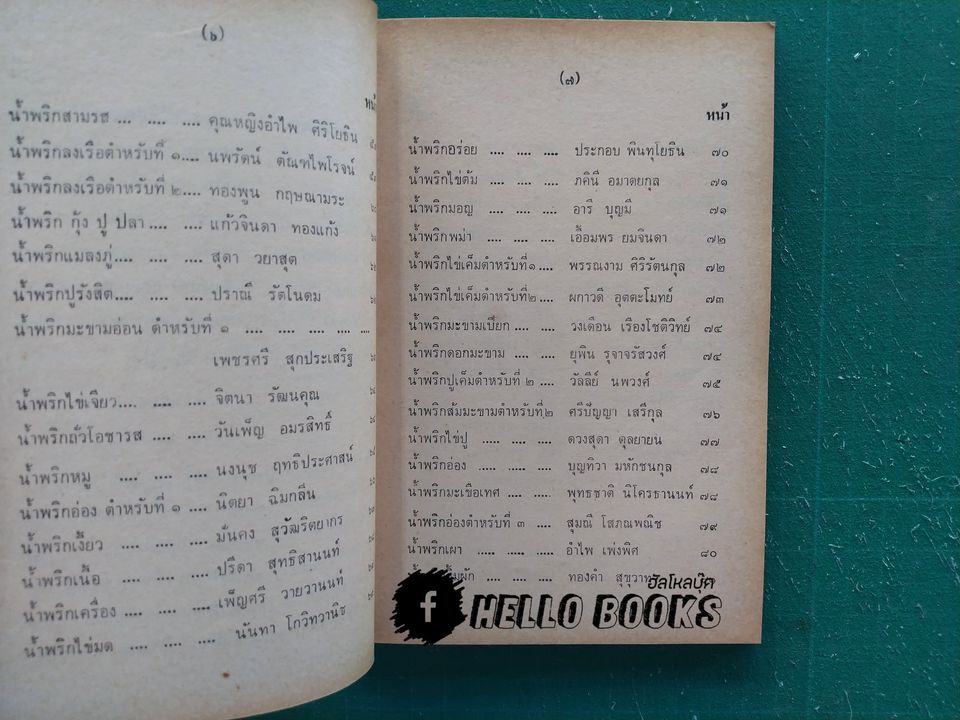 (๖)
น้ำพริกสามรส ... .... .... คุณหญิงอำไพ ศิริโยธิน
น้ำพริกลงเรือตำหรับที่ ๑.... นพวัตน์ ตัณฑไพโรจน์
น้ำพริกลงเรือตำหรับที่ ๒.... ทองพูน กฤษณามระ
น้ำพริก กุ้ง ปู ปลา .... .... แก้วจินดา ทองแก้ง
น้ำพริกแมลงภู่..... .... .... สุดา วยาสุต
น้ำพริกปูรังสิต.... .... .... ปราณี รัตโนดม
น้ำพริกมะขามอ่อน ตำหรับที่ ๑ .... .... .... .... ....
เพชรศรี สุกประเสริฐ
น้ำพริกไข่เจียว.... .... .... จิตนา รัฒนคุณ
น้ำพริกถั่วโอชารส .... .... วันเพ็ญ อมรสิทธิ์
น้ำพริกหมู .... .... .... นงนุช ฤทธิประศาสน์
น้ำพริกอ่อง ตำหรับที่ ๑ .... นิตยา ฉิมกลีน
น้ำพริกเงี้ยว .... .... .... มั่นคง สุวัฒริตยากร
น้ำพริกเนื้อ .... .... .... ปรีดา สุทธิสานนท์
น้ำพริกเครื่อง .... .... .... เพ็ญศรี วายวานนท์
น้ำพริกไข่มด .... .... .... นันทา โกวิทวานิช
(๗)
หน้า
น้ำพริกอร่อย .... .... .... ประกอบ พินทุโยธิน ๗๐
น้ำพริกไข่ต้ม .... .... .... ภคินี อมาตยกุล ๗๑
น้ำพริกมอญ .... .... .... อารี บุญมี ๗๑
น้ำพริกพม่า .... .... .... เอื้อมพร ยมจินดา ๗๒
น้ำพริกไข่เค็มตำหรับที่๑.... พรรณงาม ศิริรัตนกุล ๗๒
น้ำพริกไข่เค็มตำหรับที่๒.... ผกาวดี อุตตะโมทย์ ๗๓
น้ำพริกมะขามเปียก .... .... วงเดือน เรืองโชติวิทย์ ๗๔
น้ำพริกดอกมะขาม .... .... ยุพิน รุจาจรัสวงศ์ ๗๔
น้ำพริกปูเค็มตำหรับที่ ๒ .... วัลลีย์ นพวงศ์ ๗๕
น้ำพริกส้มมะขามตำหรับที่๒ ศรีปัญญา เสรีกุล ๗๖
น้ำพริกไข่ปู ..... .... .... ดวงสุดา ตุลยายน ๗๗
น้ำพริกอ่อง ..... ..... .... บุญทิวา มหักชนกุล ๗๘
น้ำพริกมะเขือเทศ .... .... พุทธชาติ นิโครธานนท์ ๗๘
น้ำพริกอ่องตำหรับที่ ๓ .... สุมณี โสภณพณิช ๗๙
น้ำพริกเผา ..... ..... .... อำไพ เพ่งพิศ ๘๐
ทองคำ
ฮัลโหลบุ๊ค
f HELLO BOOKS